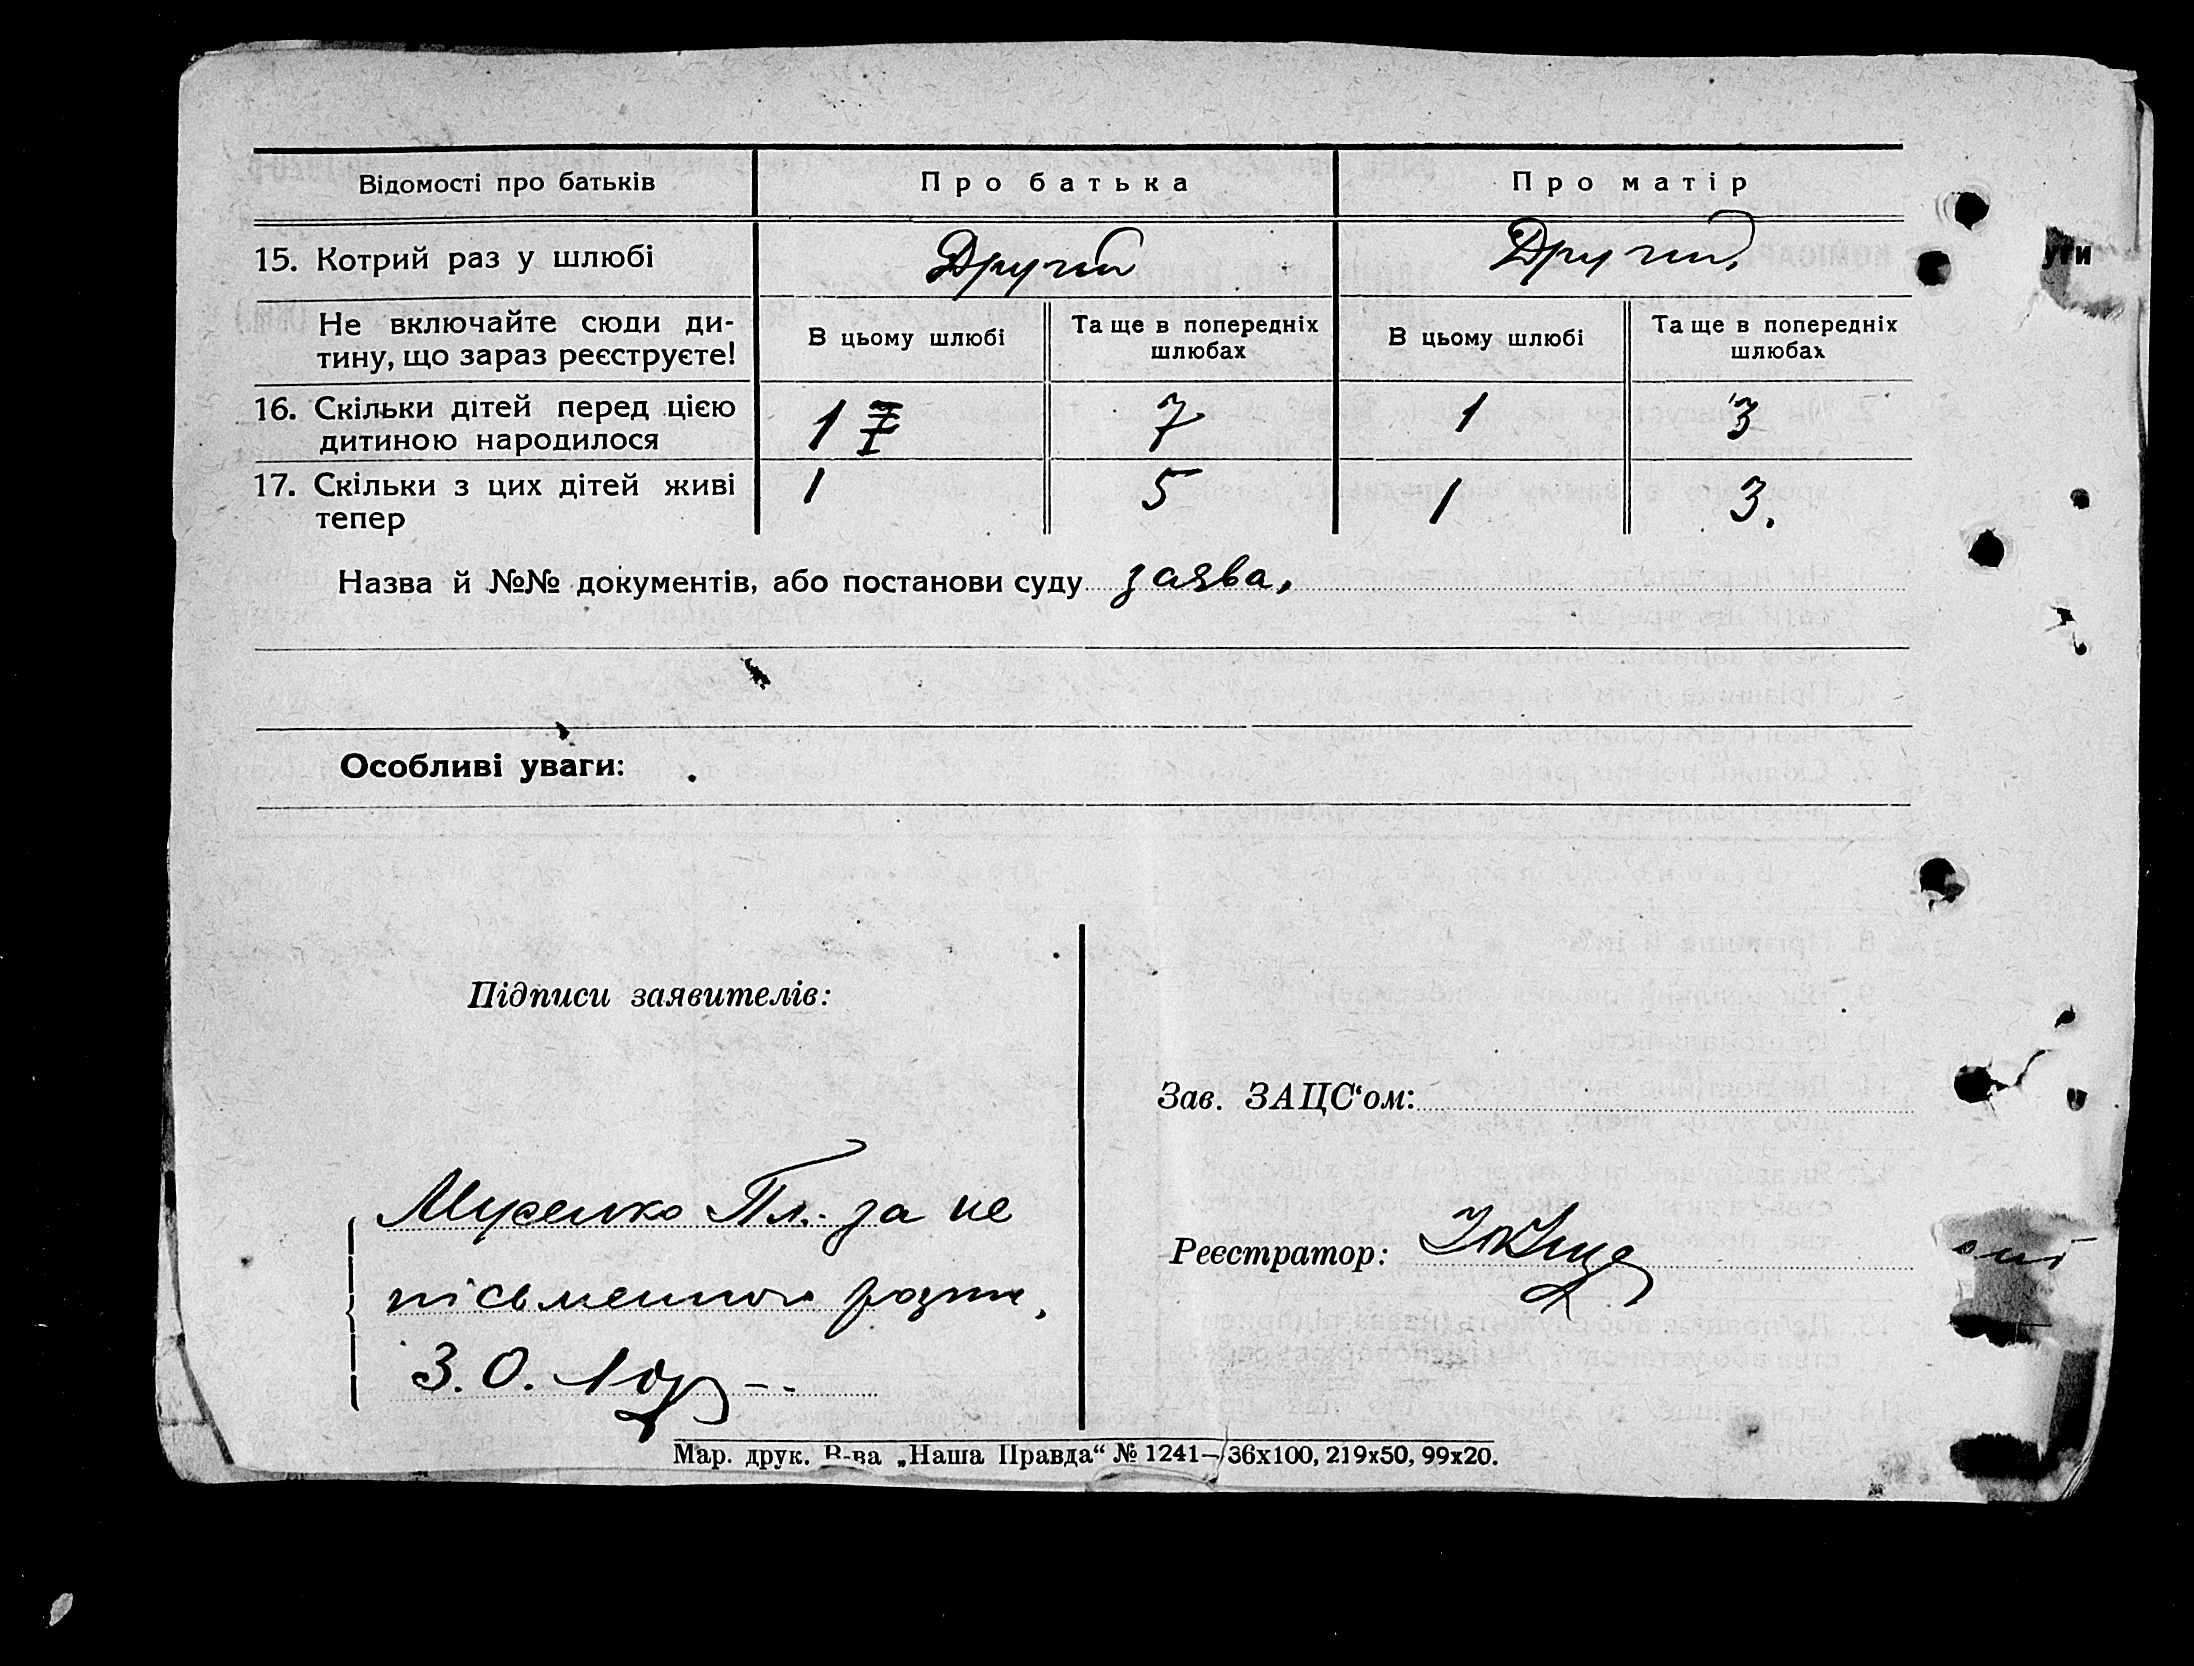 Відомості про батьків Про батька Про матір
15. Котрий раз у шлюбі Другий Другий,
Не включайте сюди ди-
тину, що зараз реєструєте!
В цьому шлюбі
Та ще в попередніх
шлюбах
В цьому шлюбі
Та ще в попередніх
шлюбах
16. Скільки дітей перед цією
дитиною народилося
1 7 1 3
17. Скільки з цих дітей живі
тепер
1 5 1 3.
Назва й №№ документів, або постанови суду заява,
Особливі уваги:
Підписи заявителів:
Зав. ЗАЦС‘ом:
Пл. за не
пісьменного розпи,
З. О.
Реєстратор:
Мар. друк. В-ва „Наша Правда“ № 1241–36х100, 219х50, 99х20.